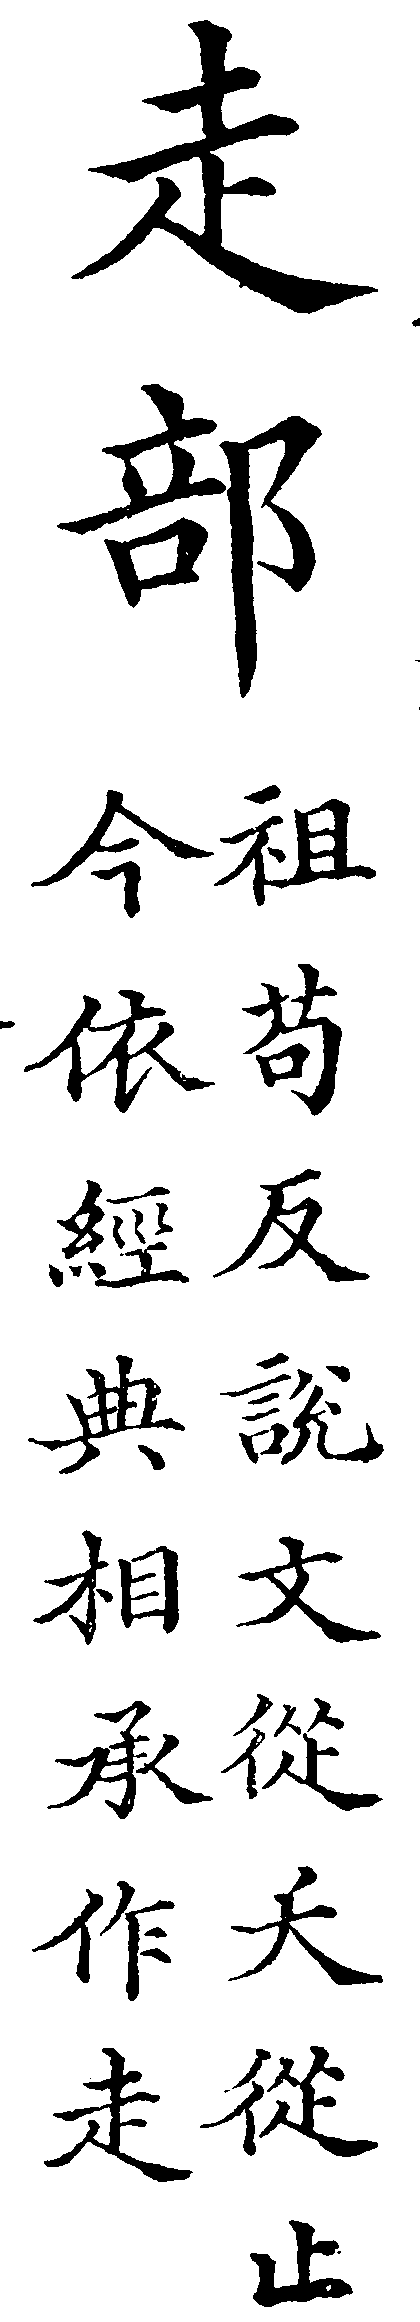 走部
祖苟反說文從夭從止
今依經典相承作走